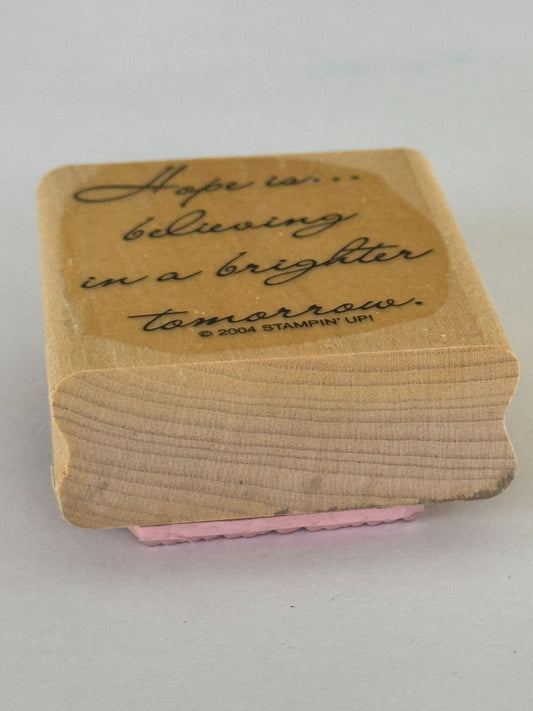 Hope is...
believing
in a brighter
tomorrow.
© 2004 STAMPIN' UP!